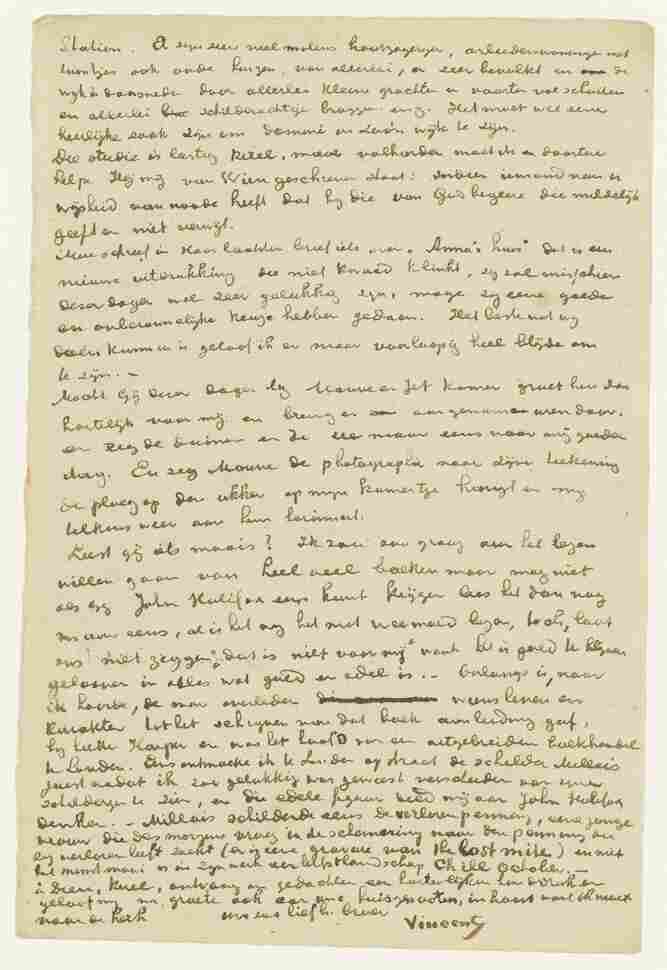 Station. Er zijn zeer veel molens houtzagerijen, arbeiderswoningen met
tuintjes ook oude huizen, van allerlei, en zeer bevolkt en de
wijk is doorsneden door allerlei kleine grachten en vaarten vol schuiten
en allerlei schilderachtige bruggen enz. Het moet wel eene
heerlijke zaak zijn om dominé in zoo'n wijk te zijn.
Die studie is lastig kerel, maar volharden moet ik en daartoe
helpe Hij mij van Wien geschreven staat: Indien iemand van u
wijsheid van noode heeft dat hij die van God begeere die mildelijk
geeft en niet verwijt.
Men schreef in Haar laatsten brief iets over "Anna's huis" dat is een
nieuwe uitdrukking die niet kwaad klinkt, zij zal misschien
dezer dagen wel zeer gelukkig zijn, moge zij eene goede
en onberouwelijke keuze hebben gedaan. Het beste wat wij
doen kunnen is geloof ik er maar voorloopig heel blijde om
te zijn. —
Mocht gij dezer dagen bij Mauve en Jet komen groet hen dan
hartelijk voor mij en breng er aangename uren door.
en zeg de duinen en de zee maar eens voor mij goeden
dag. En zeg Mauve de photographie naar zijne teekening
de ploeg op den akker op mijn kamertje hangt en mij
telkens weer aan hem herinnert.
Leest gij iets moois? Ik zou zoo graag aan het lezen
willen gaan van heel veel boeken maar mag niet
als gij John Halifax eens kunt krijgen lees het dan nog
maar eens, al is het nog het met weemoed lezen, toch, laat
ons niet zeggen, "dat is niet voor mij" want het is goed te blijven
gelooven in alles wat goed en edel is. — Onlangs is, naar
ik hoorde, de man overleden wiens leven en
karakter tot het schrijven van dat boek aanleiding gaf,
hij heette Harper en was het hoofd van een uitgebreiden boekhandel
te Londen. Eens ontmoette ik te Londen op straat de schilder Millais
juist nadat ik zoo gelukkig was geweest verscheiden van zijne
schilderijen te zien, en die edele figuur deed mij aan John Halifax
denken. — Millais schilderde eens de verloren penning, eene jonge
vrouw die des morgens vroeg in de schemering naar den penning die
zij verloren heeft zoekt (er is eene gravure van The lost mite) en niet
het minst mooi is in zijn werk een herfstlandschap Chill October. —
à Dieu, kerel, ontvang in gedachten een hartelijken handdruk en
geloof mij na groete ook aan uwe huisgenooten, in haast want ik moet
naar de kerk uw zoo liefh. broer
Vincent